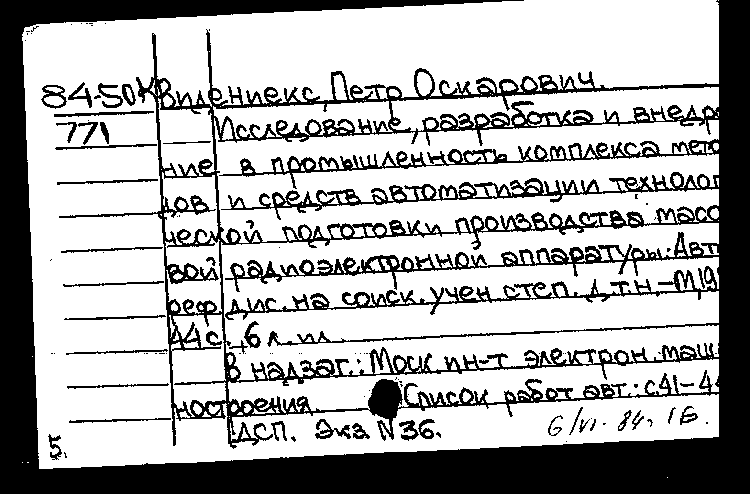 84-50К Вилениекс, Петр Оскарович.
771 Исследование, разработка и внедре
ние в промышленность комплекса мето
дов и средств автоматизации технолог
ческой подготовки производства массо
вой радиоэлектронной аппаратуры: Авт
реф. дис. на соиск. учен степ. д.т.н. - М, 19
44 с., 6 л. ил.
В надзаг.: Моск. ин-т электрон. маши
ностроения. Список работ авт.: с. 41-44
ДСП. Экз N 36. 6/VI-84.
5.